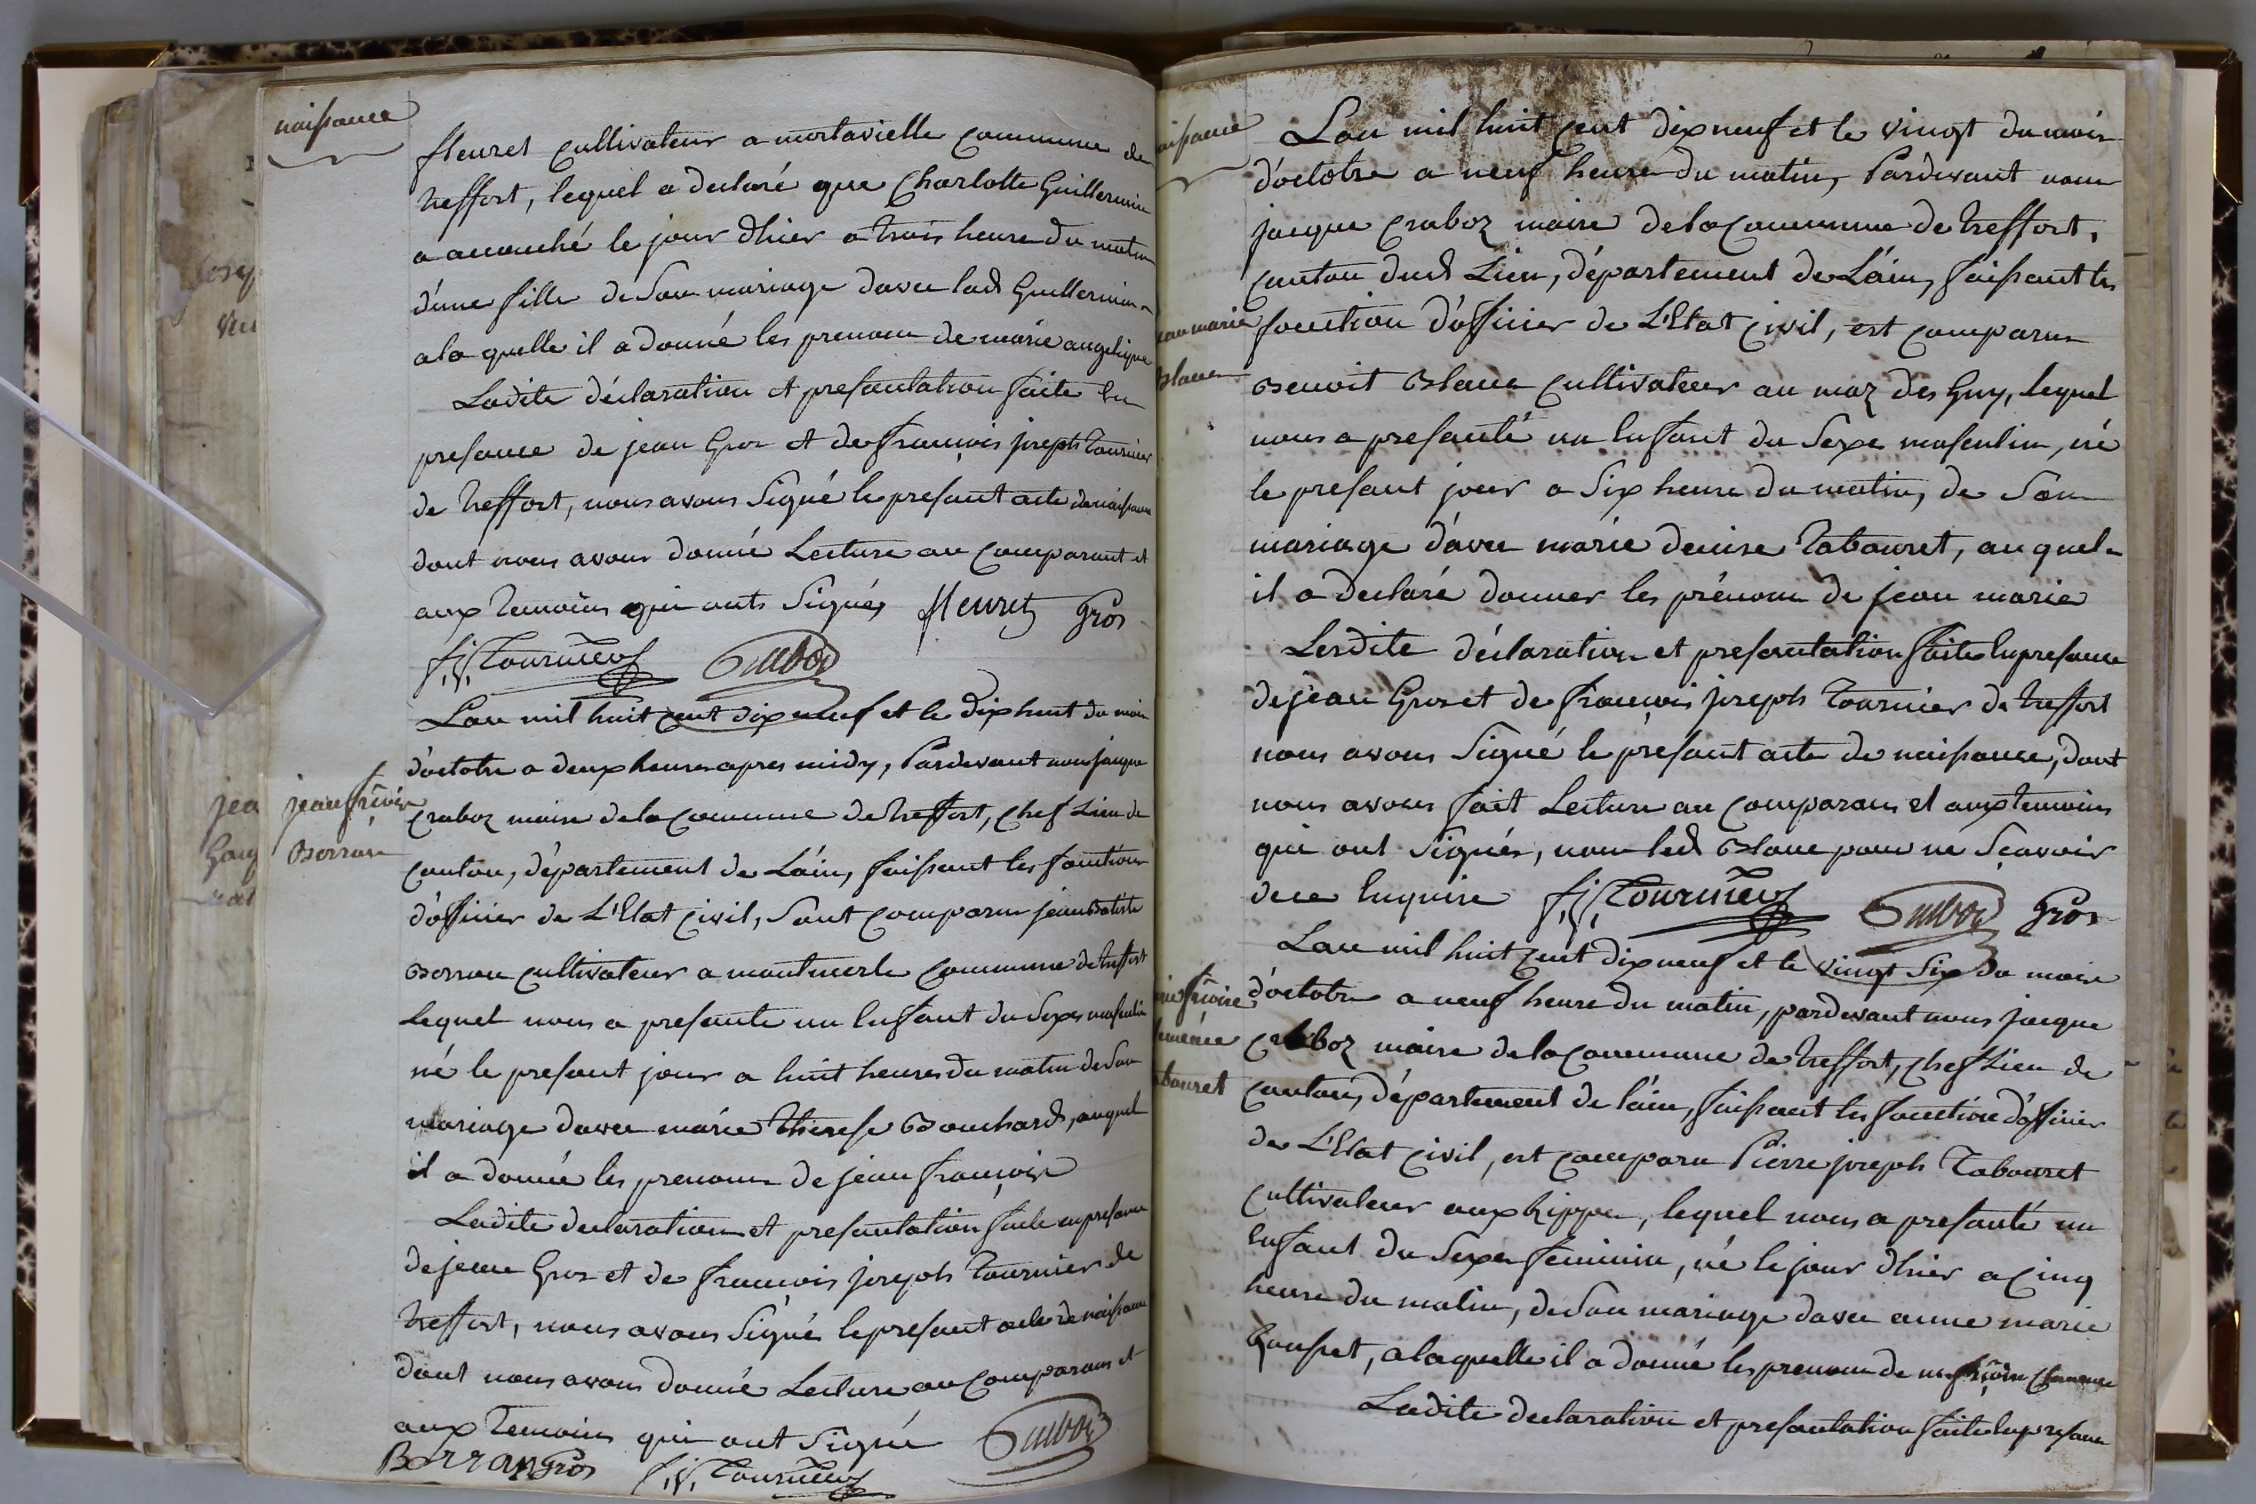 naissance
fleuret cultivateur a montavielle commune de
treffort, lequel a declaré que Charlotte Guillermin
a accouché le jour dhier a trois heure du matin
d'une fille de son mariage davec lad Guillermin
a la quelle il a donné les prenom de marie angelique
Ladite déclaration et presantation faite en
presance de jean Gros et de françois joseph Tournier
de treffort, nous avons Signé le presant acte de naissance
dont nous avons donné Lecture au comparant et
aux temoins qui onts Signés fleuret Gros
f. j. Tournier
Lan mil huit cent dix neuf et le dix huit du mois
d'octobre a deux heures apres midy, Pardevant nous jacque
Craboz maire de la Commune de treffort, chef Lieu de
jean frçois
Borron
canton, département de Láin, faissant les fonction
d'officier de L'Etat Civil, Sont comparu jean Batiste
Borron cultivateur a montmerle Commune de treffort
Lequel nous a presanté un Enfant du Sexe masculin
né le presant jour a huit heures du matin de Son
mariage davec marie therese Bouchard, auquel
il a donné les prenom de jean françois
Ladite declaration et presantation faite en presance
de jean Gros et de françois joseph Tournier de
treffort, nous avons Signé le presant acte de naissance
dont nous avons donné Lecture au Comparans et
aux Temoins qui ont Signé
Borron Gros f. j. Tournier
Lan mil huit cent dix neuf et le vingt du mois
d'octobre a neuf heure du matin, Pardevant nous
jacque Craboz maire de la Commune de treffort,
canton dud Lieu, département de Láin, faissant les
fonction d'officier de L'Etat Civil, est comparu
jean marie
Blanc
Benoit Blanc cultivateur au maz des Guy, lequel
nous a presanté un Enfant du Sexe masculin, né
le presant jour a Six heure du matin, de Son
mariage d'avec marie denise Tabouret, au quel
il a declaré donner les prénom de jean marie
Lesdite déclaration et presantation faite En presance
de jean Gros et de françois joseph Tournier de treffort
nous avons Signé le presant acte de naissance, dont
nous avons fait Lecture au Comparans et aux temoins
qui ont Signés, non led Blanc pour ne Sçavoir
de ce Enquire f. j. Tournier Gros
Lan mil huit cent dix neuf et le vingt Six du mois
d'octobre a neuf heure du matin, pardevant nous jacque
Craboz maire de la Commune de treffort, chef Lieu de
canton, département de láin, faissant les fonction d'officier
de L'Etat Civil, est comparu Pierre joseph Tabouret
cultivateur aux Rippes, lequel nous a presanté un
Enfant du Sexe feminin, né le jour d'hier a Cinq
heure du matin, de Son mariage davec anne marie
Gousset, a laquelle il a donné les prenom de frçoise Clemence
Ladite declaration et presantation faite En presance